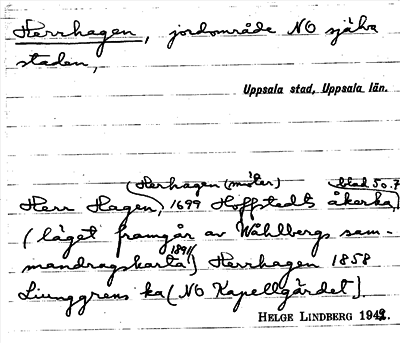 Herrhagen, jordområde NO själva
staden,
Uppsala stad, Uppsala län.
(Herhagen (möter) blad 50.7
Herr Hagen, 1699 Hoffstedts åkerka,
(läget framgår av Wåhlbergs sam-
mandragskarta 1841) Herrhagen 1858
Ljunggrens ka (NO Kapellgärdet).
HELGE LINDBERG 1942.